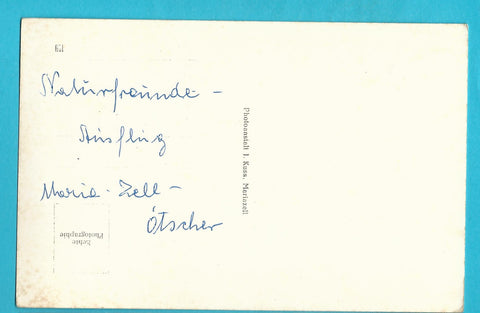 Naturfreunde-
Ausflug
Maria-Zell-
Ötscher
Photoanstalt J. Kuss, Mariazell
Echte
Photographie